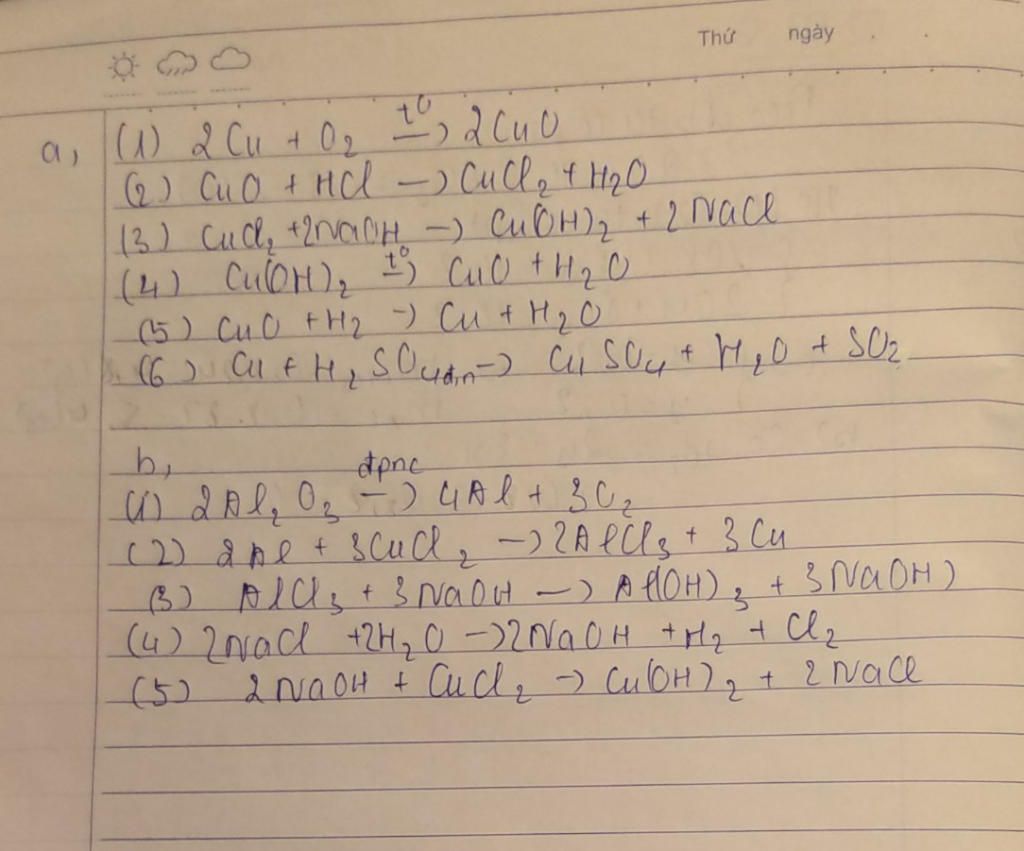 Thứ ngày . .
a, (1) 2Cu + O₂ —t⁰→ 2CuO
(2) CuO + HCl → CuCl₂ + H₂O
(3) CuCl₂ + 2NaOH → Cu(OH)₂ + 2NaCl
(4) Cu(OH)₂ —t⁰→ CuO + H₂O
(5) CuO + H₂ → Cu + H₂O
(6) Cu + H₂SO₄đ,n → CuSO₄ + H₂O + SO₂
b,
(1) 2Al₂O₃ —đpnc→ 4Al + 3O₂
(2) 2Al + 3CuCl₂ → 2AlCl₃ + 3Cu
(3) AlCl₃ + 3NaOH → Al(OH)₃ + 3NaOH)
(4) 2NaCl + 2H₂O → 2NaOH + H₂ + Cl₂
(5) 2NaOH + CuCl₂ → Cu(OH)₂ + 2NaCl